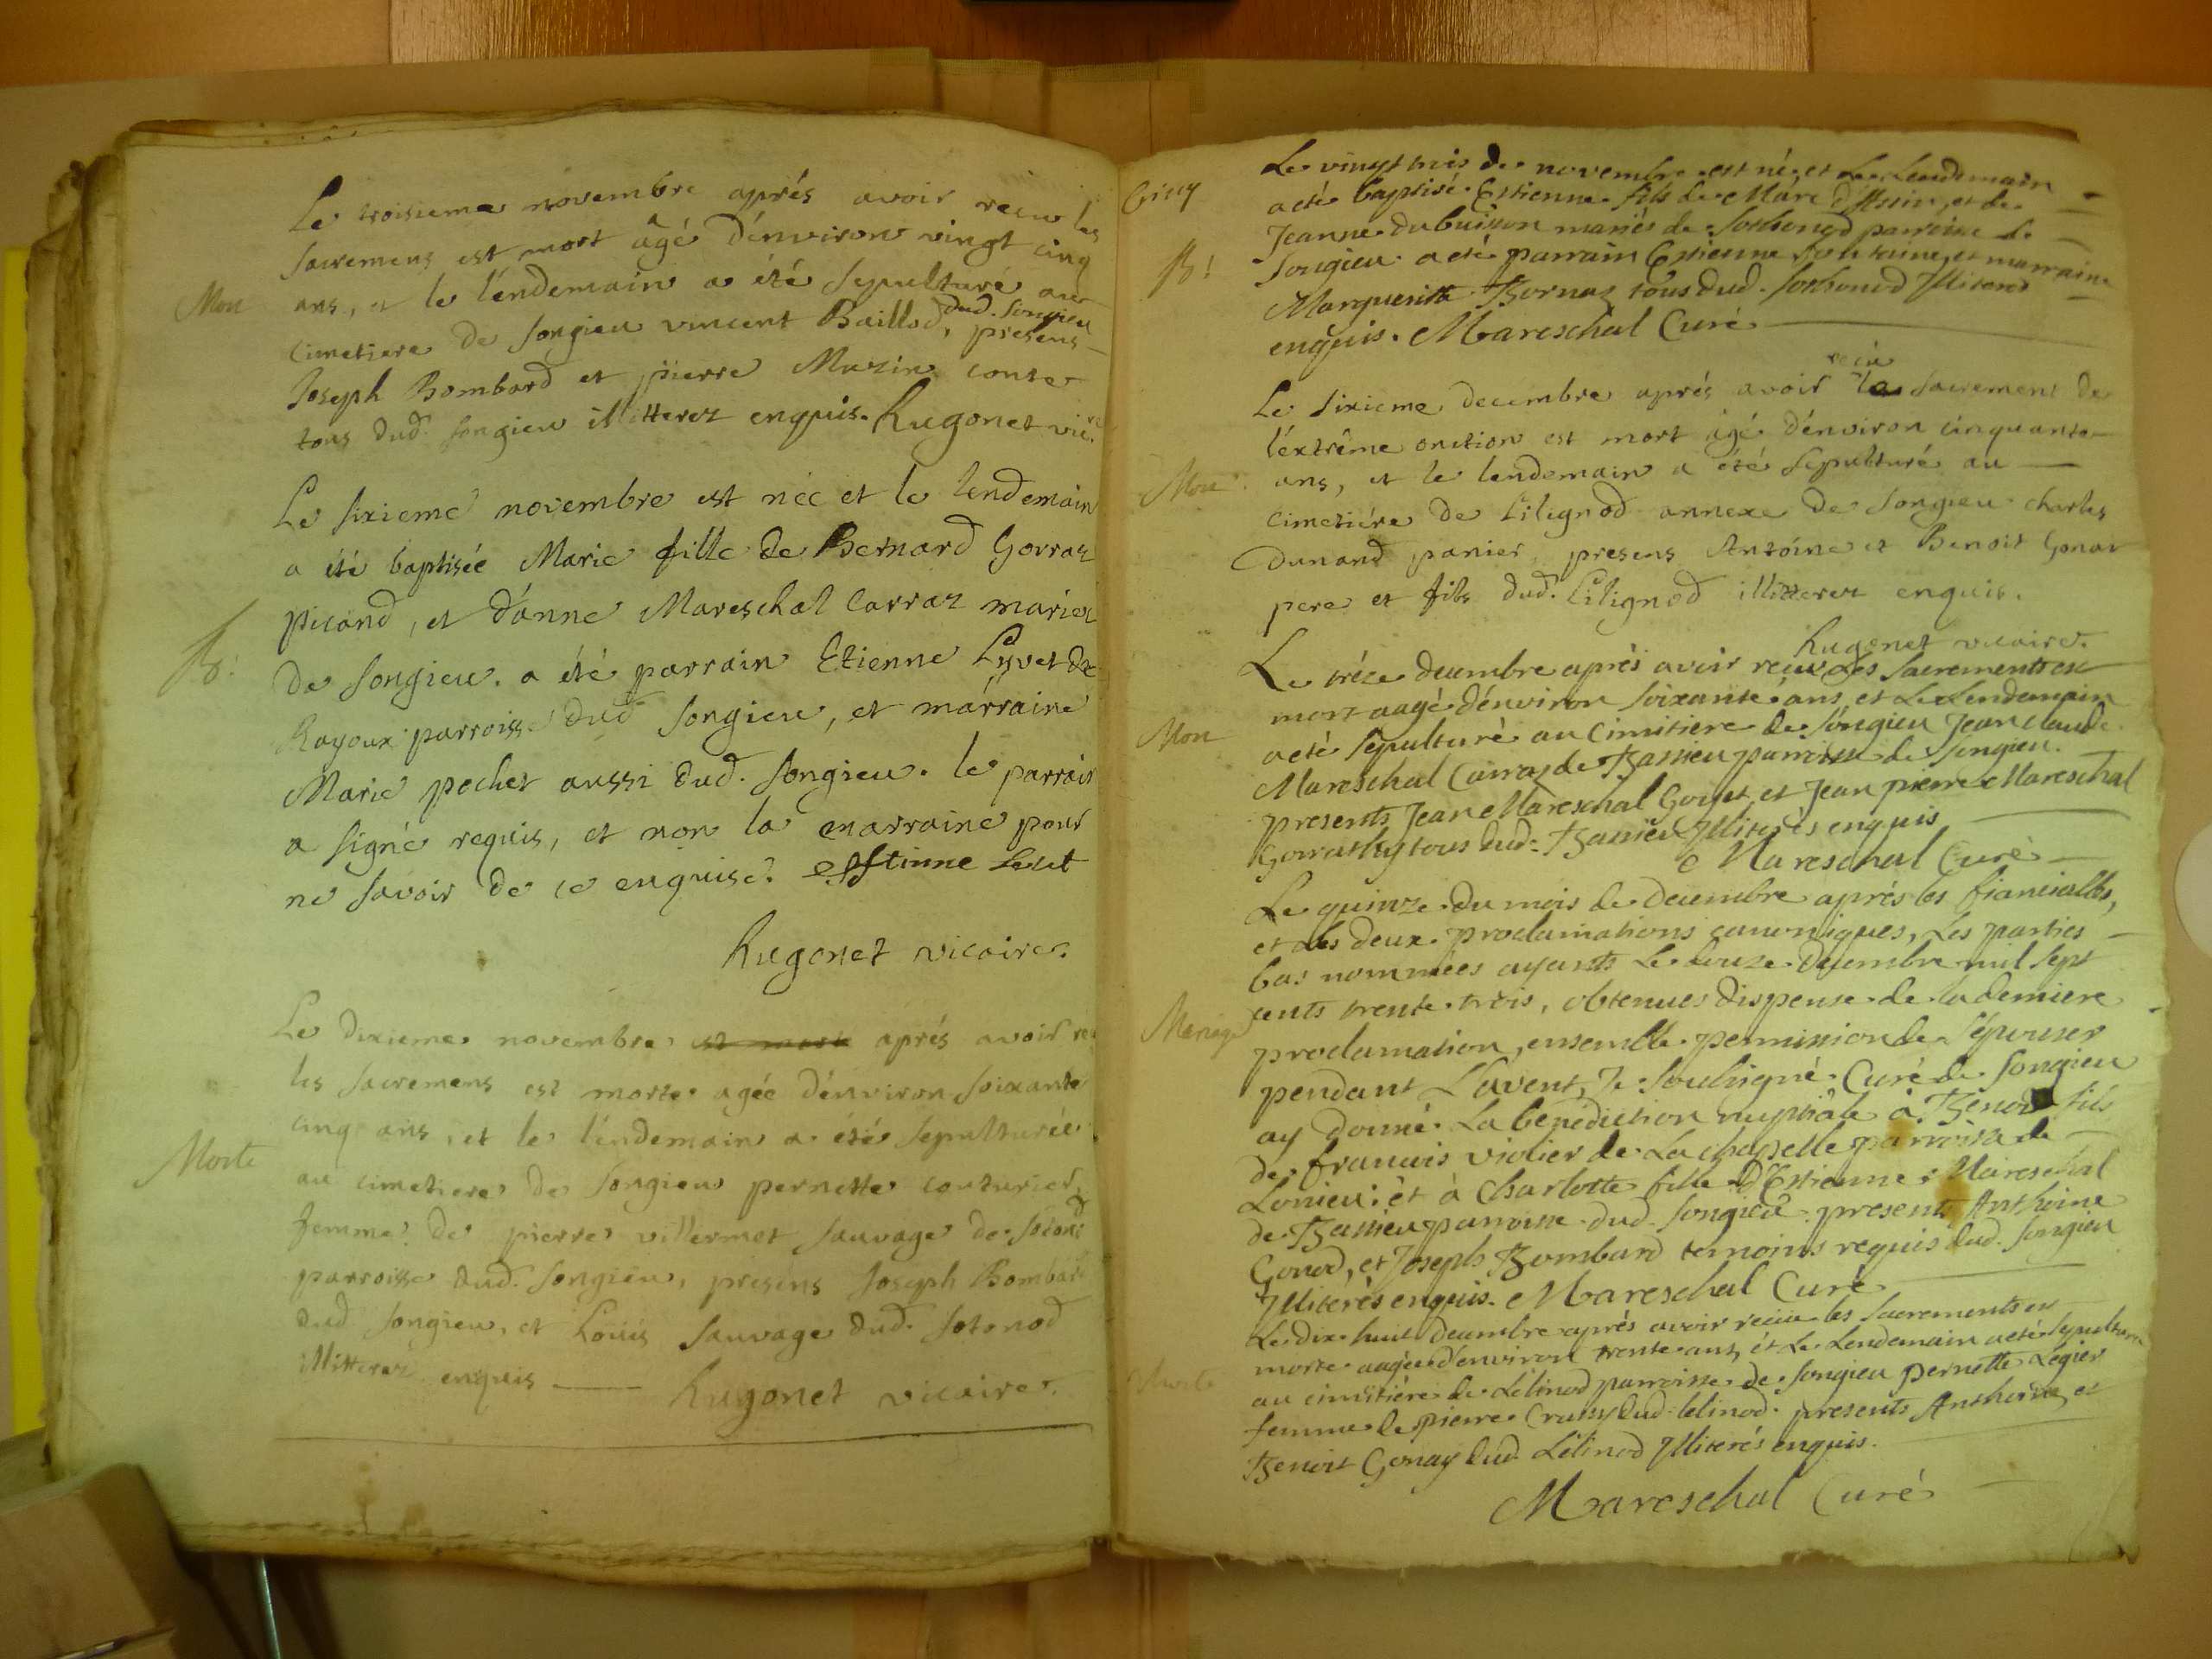 Le troisieme novembre aprés avoir reciu les
sacremens est mort âgé d'énviron vingt cinq
Mon ans, et le lendemain a été sepulturé au
cimetiere de songieu vincent Baillod, dud. songieu presens
Joseph Bombard et pierre Muzin conte
tous dud. songieu illitterez enquis. Hugonet vic.re
Le sixieme novembre est née et le lendemain
a été baptisée Marie fille de Bernard Gorraz
picond, et d'anne Mareschal Carraz mariez
B: de songieu. a été parrain Etienne Lyvet de
parroisse dud songieu, et márraine
Marie pochet aussi dud. songieu. le parrain
a signé requis, et non la marraine pour
ne savoir de ce enquise. esftinne
Hugonet vicaire.
Le dixieme novembre est morte aprés avoir re
les sacremens est morte agée d'énviron soixante
cinq ans, et le lendemain a été sepulturée
Morte au cimetiere de songieu pernette couturier,
femme de pierre villermet sauvage de
parroisse dud. songieu, presens Joseph Bombard
dud songieu, et Loüis sauvage dud. sotonod
illitterez enquis Hugonet vicaire.
Le vingt trois de novembre est né, et Le Lendemain
acté baptisé Estienne fils de Marc d'Assin, et de
Jeanne dubuisson mariés de sothonod parroisse de
B! songieu acté parrain Estienne et marraine
Marguerite Bornaz tous dud. sothonod Illiteres
enquis. Mareschal Curé
Le sixieme decembre aprés avoir reciu le sacrement de
l'éxtrême onction est mort âgé d'énviron cinquante
Mon ans, et le lendemain a été sepulturé au
cimetiére de Lilignod annexe de songieu charles
Dunand panier, presens Antoine et Benoit Gonar
pere et fils dud. Lilignod illitterez enquis.
Hugonet vicaire.
Le tréze decembre aprés avoir reciu Les sacrements est
mort aagé d'énviron soixante ans, et Le Lendemain
Mon acté sépulturé au Cimitiere de songieu Jean claude
Mareschal Carraz de Bassieu parroisse de songieu.
presents Jean Mareschal Goyet, et Jean pierre Mareschal
tous dud: Bassieu Illiterés enquis
Mareschal Curé
Le quinze du mois de decembre aprés les fiancialles,
et Les deux proclamations canoniques, Les parties
bas nommées ayants Le decembre mil sept
cents trente trois, obtenues dispense de la derniere
Mariage proclamation, ensemble permission de s'épouser
pendant L'avent, Je soubsigné Curé de songieu
ay donné La benédiction nuptiâle à Benod fils
de francois violier de La chapelle parroisse de
Lonieu: et à Charlotte fille d'Estienne Mareschal
de Bassieu parroisse dud. songieu. presents Anthoine
Gonod, et Joseph Bombard temoins requis dud. songieu
Illiterés enquis. Mareschal Curé
Le dix huit decembre aprés avoir reciu les sacrements est
morte aagée d'énviron trente ans, et Le Lendemain acté sepulturée
Morte au cimitiére de Lélinod parroisse de songieu pernette Légier
femme de pierre dud lelinod. presents Anthoine, et
Benoit Gonay dud. Lélinod Illiterés enquis.
Mareschal Curé